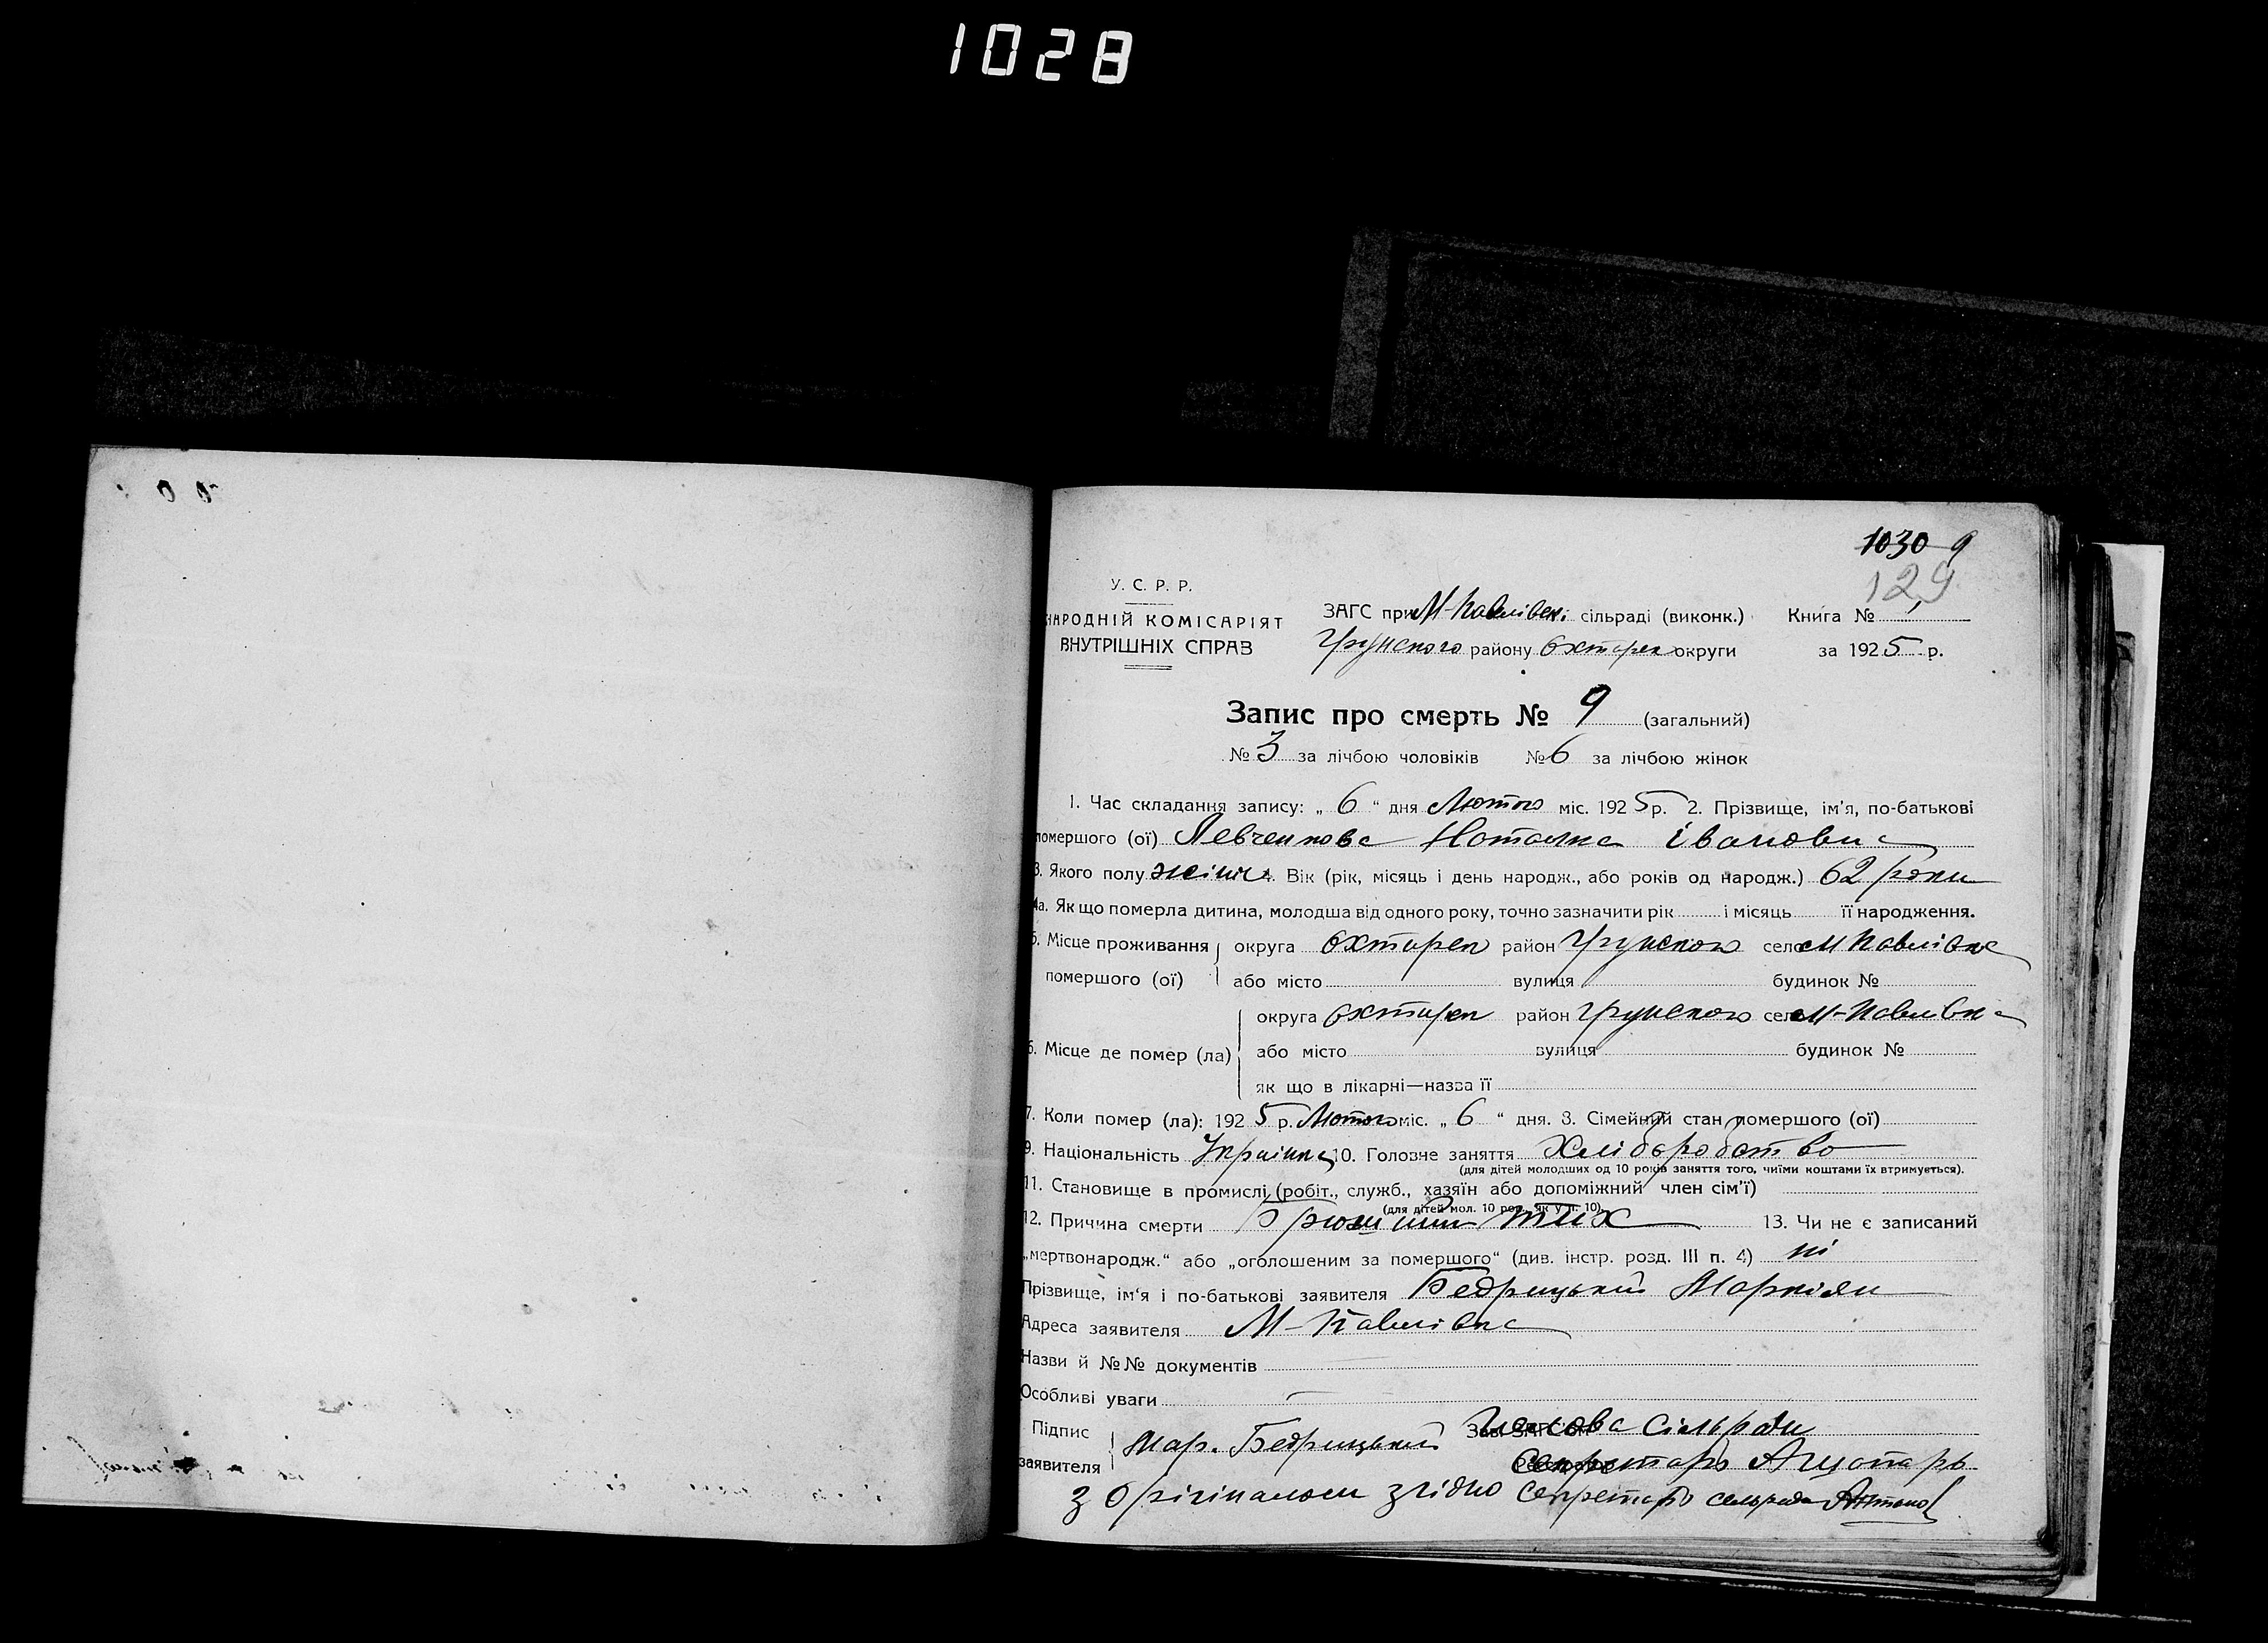 1028
1030 9
129
У. С. Р. Р.
НАРОДНІЙ КОМІСАРІЯТ
ВНУТРІШНІХ СПРАВ
ЗАГС при М-Павлівск. сільраді (виконк.) Книга №
Грунского району Охтирск округи за 1925 р.
Запис про смерть № 9 (загальний)
№ 3 за лічбою чоловіків № 6 за лічбою жінок
1. Час складання запису: „ 6 “ дня Лютого міс. 1925 р. 2. Прізвище, ім'я, по-батькові
помершого (ої) Левченкова Наталка Івановна
3. Якого полу жіноч 4. Вік (рік, місяць і день народж., або років од народж.) 62 роки
4а. Як що померла дитина, молодша від одного року, точно зазначити рік і місяць її народження.
5. Місце проживання округа Охтирск район Грунского село М Павлівка
помершого (ої) або місто вулиця будинок №
округа Охтирск район Грунского село М-Павлівка
6. Місце де помер (ла) або місто вулиця будинок №
як що в лікарні—назва її
7. Коли помер (ла): 1925 р. Лютого міс. „ 6 “ дня. 8. Сімейний стан помершого (ої)
9. Національність Украінка 10. Головне заняття Хліборобство
(для дітей молодших од 10 років заняття того, чиїми коштами їх втримується).
11. Становище в промислі (робіт., служб., хазяїн або допоміжний член сім'ї)
(для дітей мол. 10 рок. як у п. 10).
12. Причина смерти тиф 13. Чи не є записаний
„мертвонародж.“ або „оголошеним за помершого“ (див. інстр. розд. III п. 4) ні
Прізвище, ім'я і по-батькові заявителя Бедрицький Маркіян
Адреса заявителя М-Павлівка
Назви й №№ документів
Особливі уваги
Підпис заявителя Мар. Бедрицький Зав. ЗАГС'ом Голова Сільради
Секретарь
З Оригіналом згідно Секретарь сельради